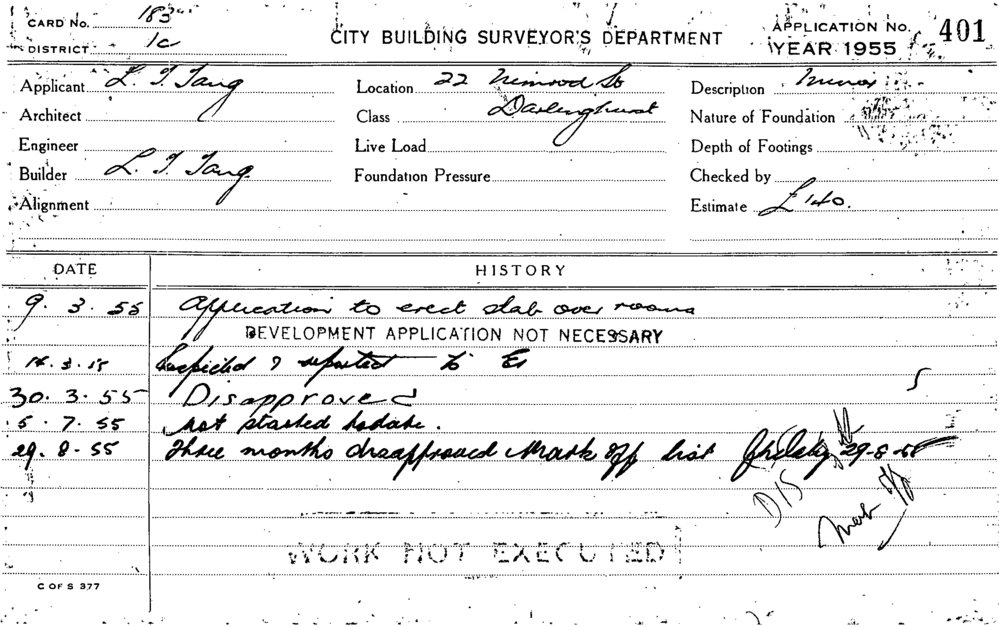 CARD No. 183
DISTRICT 1c
CITY BUILDING SURVEYOR'S DEPARTMENT
APPLICATION No. 401
YEAR 1955
Applicant L. T. Tang
Location 22 Nimrod St
Description Minor
Architect
Class Darlinghurst
Nature of Foundation
Engineer
Live Load
Depth of Footings
Builder L. T. Tang
Foundation Pressure
Checked by
Alignment
Estimate £140.
DATE HISTORY
9. 3. 55 Application to erect slab over rooms
DEVELOPMENT APPLICATION NOT NECESSARY
3. 55 Inspected & reported to
30. 3. 55 Disapproved
5. 7. 55 Not started todate.
29. 8. 55 Three months disapproved Mark off list 29-8-55
DIS
Mark off
WORK NOT EXECUTED
C OF S 377